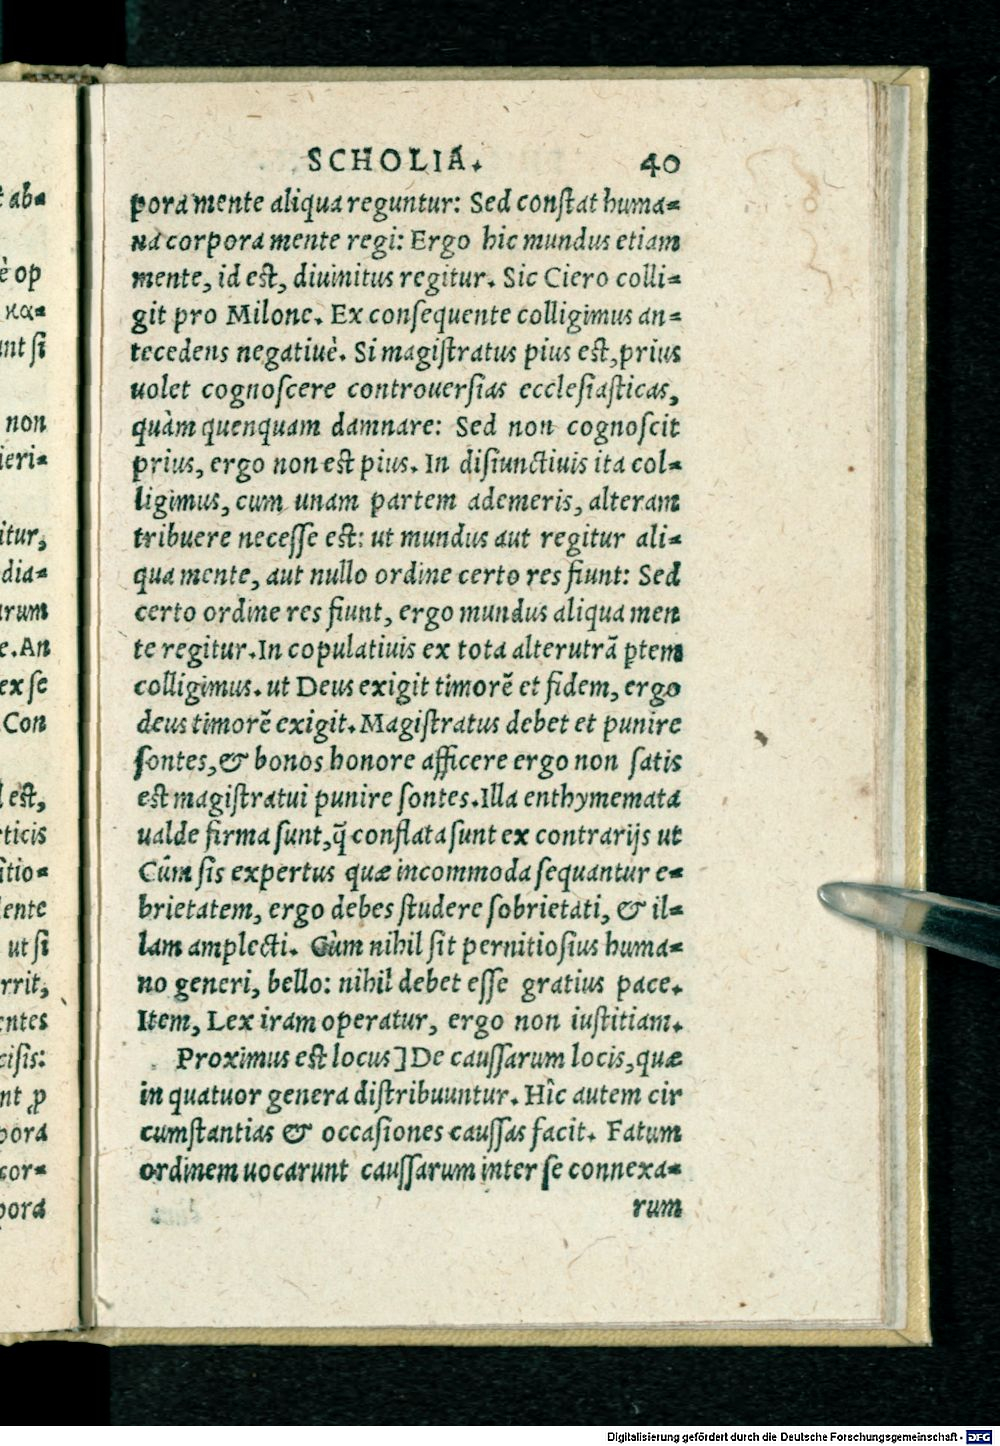 SCHOLIA. 40
pora mente aliqua reguntur: Sed constat huma-
na corpora mente regi: Ergo hic mundus etiam
mente, id est, diuinitus regitur. Sic Ciero colli-
git pro Milone. Ex consequente colligimus an-
tecedens negatiuè. Si magistratus pius est, prius
uolet cognoscere controuersias ecclesiasticas,
quàm quenquam damnare: Sed non cognoscit
prius, ergo non est pius. In disiunctiuis ita col-
ligimus, cum unam partem ademeris, alteram
tribuere necesse est: ut mundus aut regitur ali-
qua mente, aut nullo ordine certo res fiunt: Sed
certo ordine res fiunt, ergo mundus aliqua men
te regitur. In copulatiuis ex tota alterutrã ꝑtem
colligimus. ut Deus exigit timorẽ et fidem, ergo
deus timorẽ exigit. Magistratus debet et punire
sontes, & bonos honore afficere ergo non satis
est magistratui punire sontes. Illa enthymemata
ualde firma sunt, q̃ conflata sunt ex contrarijs ut
Cùm sis expertus quæ incommoda sequantur e-
brietatem, ergo debes studere sobrietati, & il-
lam amplecti. Cùm nihil sit pernitiosius huma-
no generi, bello: nihil debet esse gratius pace.
Item, Lex iram operatur, ergo non iustitiam.
Proximus est locus] De caussarum locis, quæ
in quatuor genera distribuuntur. Hîc autem cir
cumstantias & occasiones caussas facit. Fatum
ordinem uocarunt caussarum inter se connexa-
rum
t ab-
è op
κα-
unt si
non
ieri-
itur,
dia-
arum
e. An
ex se
Con
est,
rticis
itio-
lente
ut si
rrit,
entes
cisis:
nt ꝓ
pora
cor-
pora
Digitalisierung gefördert durch die Deutsche Forschungsgemeinschaft - DFG